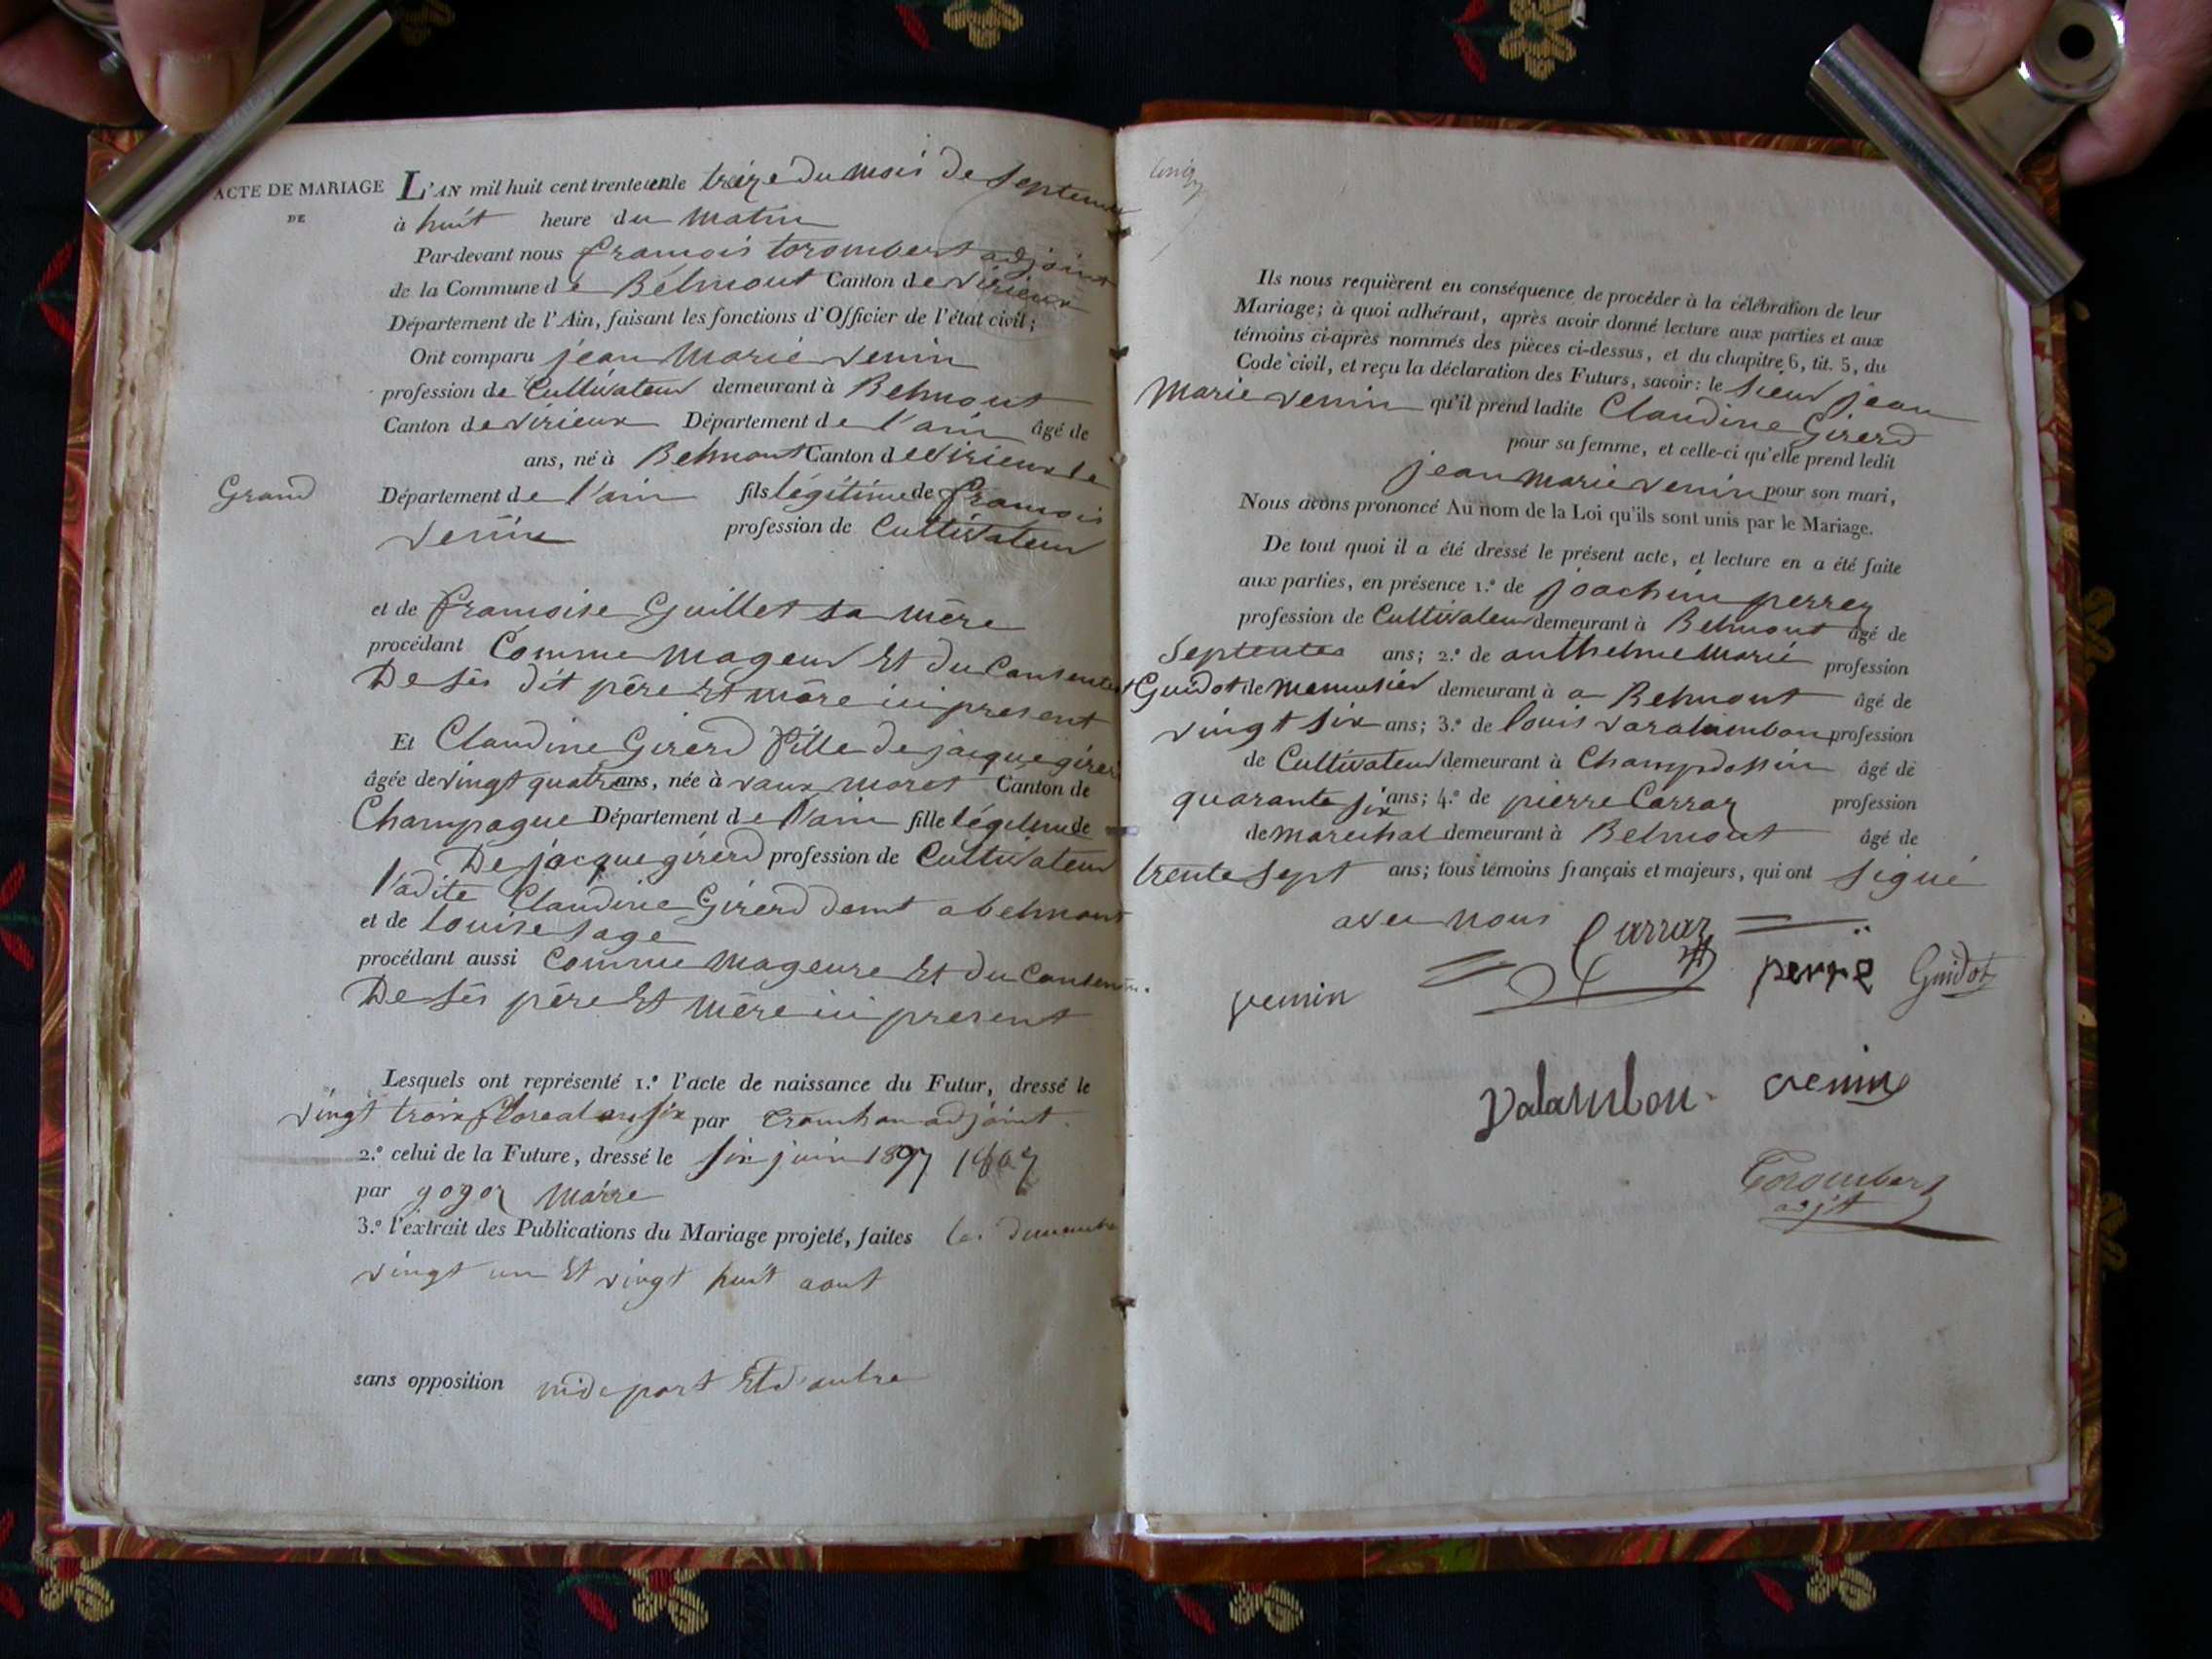 ACTE DE MARIAGE
DE
L'AN mil huit cent trente un le treize du mois de Septembre
à huit heure du matin
Par-devant nous françois torombert adjoint
de la Commune de Belmont Canton de virieux
Département de l'Ain, faisant les fonctions d'Officier de l'état civil;
Ont comparu jean Marie venin
profession de Cultivateur demeurant à Belmont
Canton de virieux Département de l'ain âgé de
ans, né à Belmont Canton de virieux le
Grand Département de l'ain fils légitime de françois
venin profession de Cultivateur
et de françoise Guillet sa mère
procédant Comme mageur Et du Consentemt
De sés dit père Et mère ici present
Et Claudine Girerd fille de jacque girerd
âgée de vingt quatre ans, née à vaux moret Canton de
Champagne Département de l'ain fille légitime de
De jacque girerd profession de Cultivateur
l'adite Claudine Girerd demt a belmont
et de louise sage
procédant aussi comme mageure Et du Consentem.
De sés père Et mère ici present
Lesquels ont représenté 1.º l'acte de naissance du Futur, dressé le
vingt trois floreal an six par adjoint
2.º celui de la Future, dressé le six juin 1897 1807
par gogoz maire
3.º l'extrait des Publications du Mariage projeté, faites les dimanche
vingt un Et vingt huit aout
sans opposition ni de part Et d'autre
Ils nous requièrent en conséquence de procéder à la célébration de leur
Mariage; à quoi adhérant, après avoir donné lecture aux parties et aux
témoins ci-après nommés des pièces ci-dessus, et du chapitre 6, tit. 5, du
Code civil, et reçu la déclaration des Futurs, savoir: le sieur jean
Marie venin qu'il prend ladite Claudine Girerd
pour sa femme, et celle-ci qu'elle prend ledit
jean marie venin pour son mari,
Nous avons prononcé Au nom de la Loi qu'ils sont unis par le Mariage.
De tout quoi il a été dressé le présent acte, et lecture en a été faite
aux parties, en présence 1.º de joachim perrez
profession de Cultivateur demeurant à Belmont âgé de
ans; 2.º de anthelme Marie profession
Guidot de menusier demeurant à a Belmont âgé de
vingt six ans; 3.º de louis varalambon profession
de Cultivateur demeurant à Champdossin âgé de
quarante six ans; 4.º de pierre Carraz profession
de marechal demeurant à Belmont âgé de
trente sept ans; tous témoins français et majeurs, qui ont signé
avec nous Carraz
venin perre Guidot
Valambon venin
Torombert
adjt